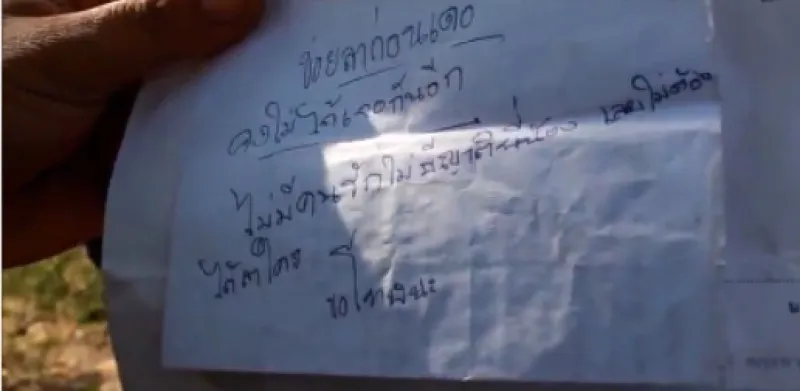 ข่อยลาก่อนเดอ
คงไม่ได้เจอกันอีก
ไม่มีคนรักไม่มีญาติพี่น้อง และไม่ต้อง
ได้ลาใคร
ขอโทษนะ